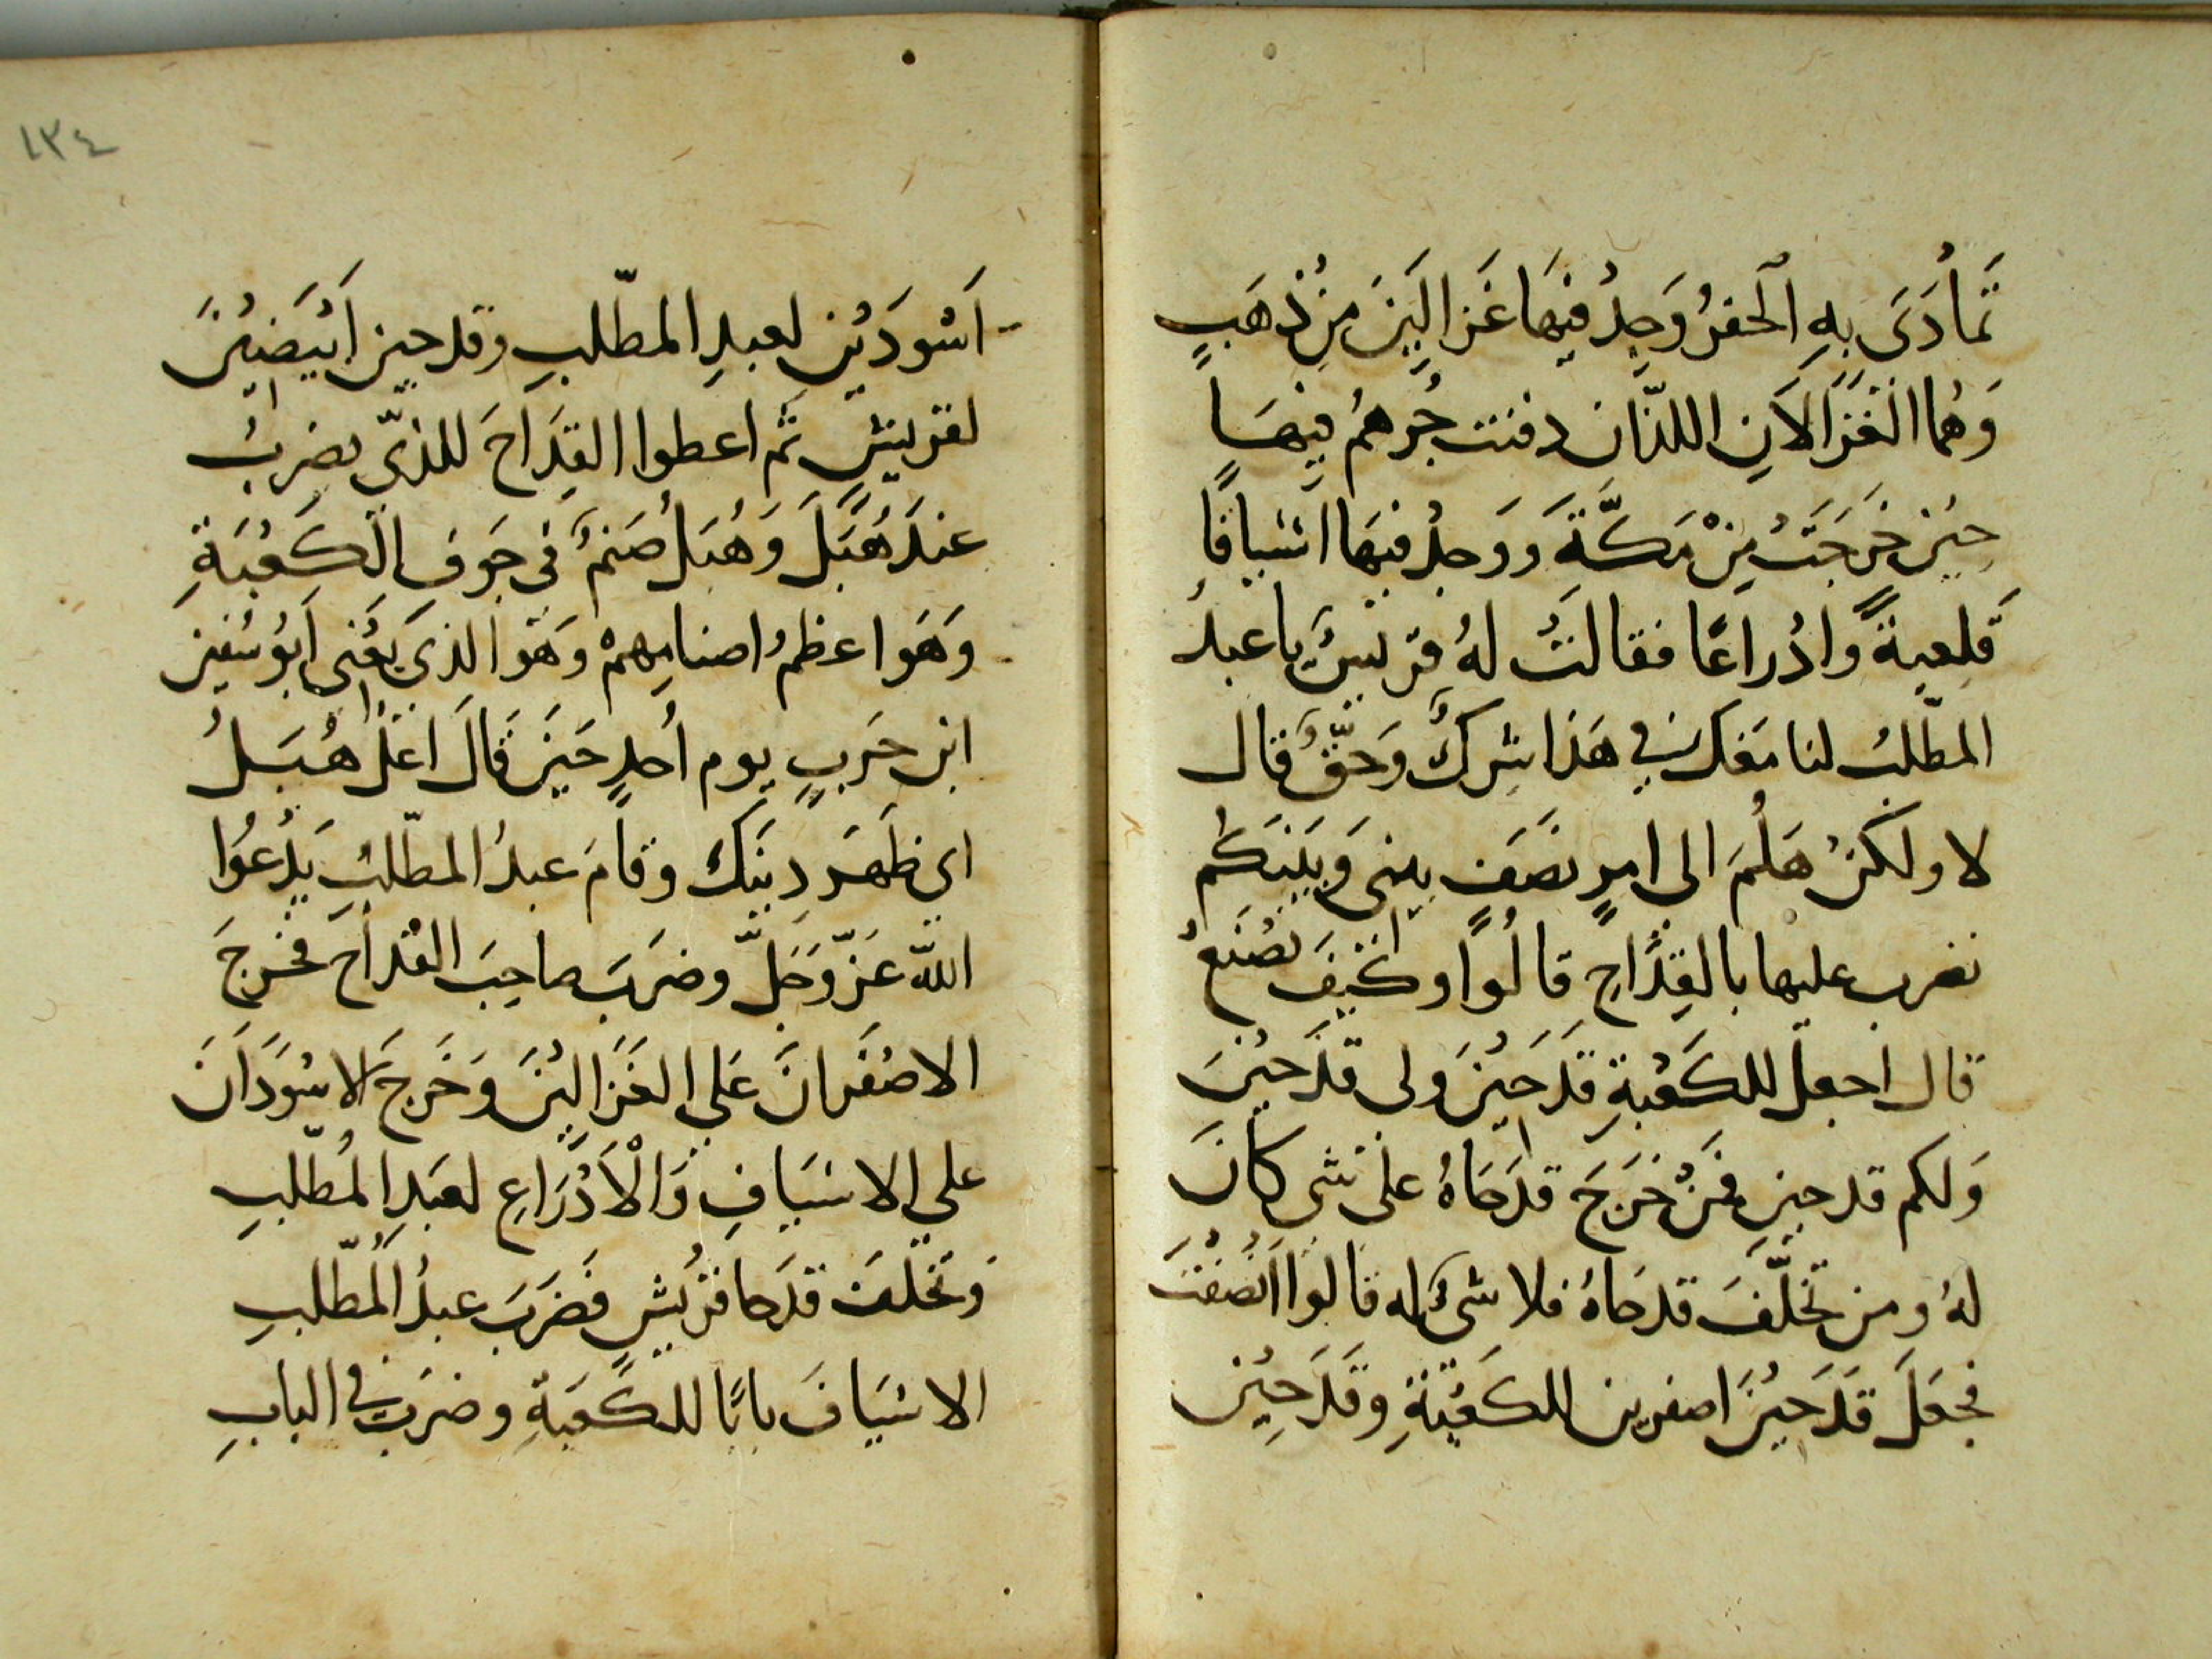 تَمادَىَ بِهِ الحفرُ وَجِدُ فيَها غَزالَينَ مِنْ ذهَبٍ
وَهُما الغَزَالاَنِ اللذّان دفنت جُرهُمُ فيهَا
حيْن خَرجَتْ مِنْ مَكَّةَ ووَجدُ فيَها اسْيافًا
قَلعيةً وادْراعًا فقالتْ لهُ قريشٌ يا عبدُ
المطّلبُ لنا معَك في هَذا شِركٌ وَحَقٌّ قال
لا ولكنْ هَلُمَ الى امرٍ نصَفٍ بينى وَبَيْنَكُم
نضرب عليها بالقِدَاحِ قالُوا وكَيْفَ نصْنَعُ
قال اجعل للكَعْبَةِ قَدَحَيْنَ ولى قَدَحَيْنَ
وَلكم قدحين فَمَنْ خَرَجَ قدَحَاهُ على شي كانَ
لهُ ومن تخلَّفَ قدحَاهُ فلا شىَ له قالوا اَنصَفْتَ
فجعَلَ قَدَحَيْنَ اصفرين للكَعْبَةِ وقَدَحِيْن
١٣٤
اَسْوَدَيْنِ لعبدِ المطّلبِ وقدحين اَبْيَضَيْنَ
لقريشٍ ثم اعطوا القِدَاحَ للذيّ يضربُ
عندَ هُبَلَ وَهُبَل صَنمٌ فى جَوفِ الكَعْبَةِ
وَهَوا عظمُ اصنامِهمْ وَهَوا الذى يَعْنى اَبوُ سُفين
ابن حَربٍ يوم اُحدٍ حَيَن قَالَ اعْلُ هُبَلُ
اى ظَهَرَ دِينَك وقامَ عبدُ المطّلبِ يَدْعُوا
اللّه عَزّ وَجَلَّ وضرَبَ صاحِبَ القدَاحَ فخَرجَ
الاصْفَرانَ عَلي الغَزَاليْنَ وَخَرجَ الاسْوَدَانَ
علي الاسْيَافِ وَالْاَدْرَاعِ لعَبَدِ المُطّلبِ
وَتخلفَ قدَحا قرْيشٍ فَضَرَبَ عبدُ المُطّلبِ
الاسْيَافَ بابًا للكَعبَةِ وضرَبَ في البابِ